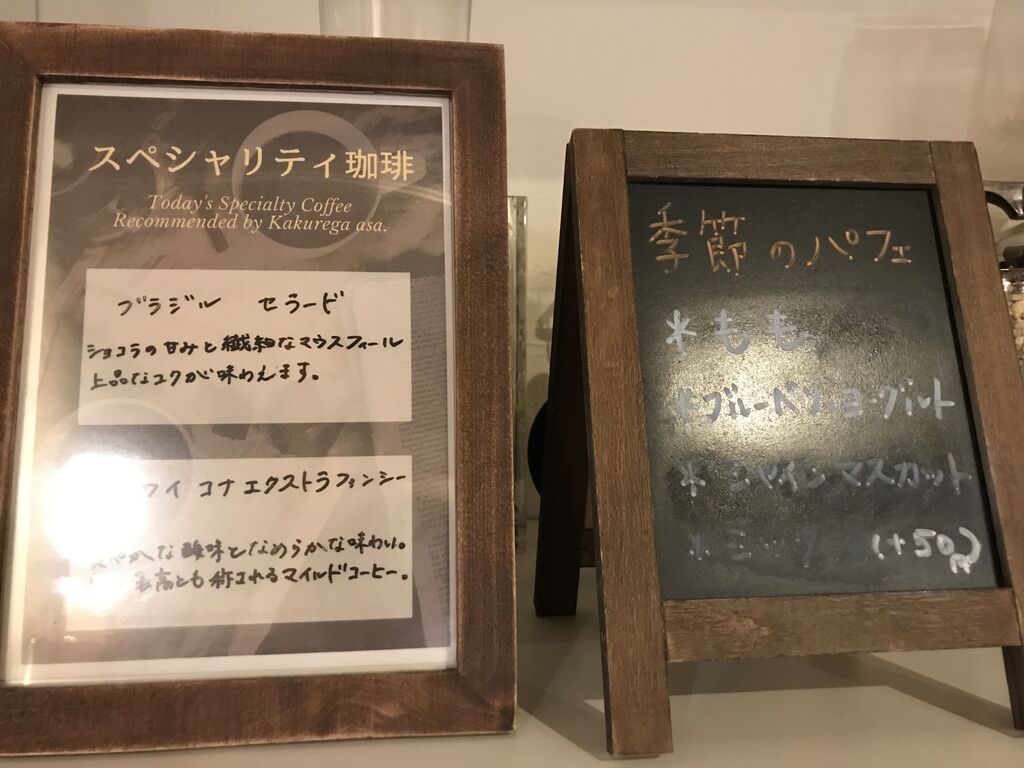 スペシャリティ珈琲
Today's Specialty Coffee
Recommended by Kakurega asa.
ブラジル セラード
ショコラの甘みと繊細なマウスフィール
上品なコクが味わえます。
コナ エクストラファンシー
やかな酸味となめらかな味わい。
至高とも称されるマイルドコーヒー。
季節のパフェ
*もも
*ブルーベリーヨーグルト
*シャインマスカット
*ミックス (+50円)